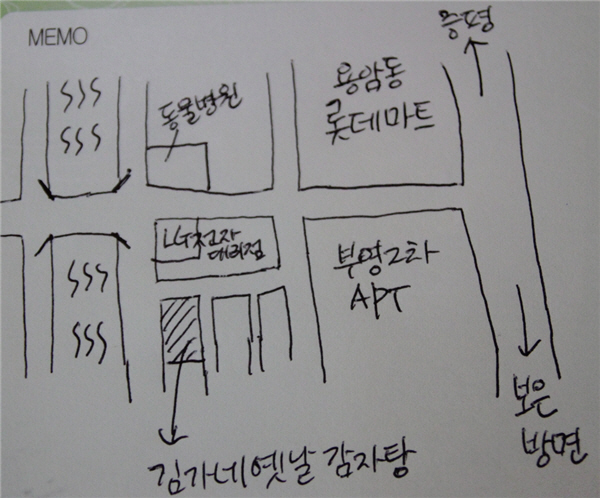 MEMO
증평
용암동
롯데마트
동물병원
LG전자
대리점
부영2차
APT
보은
방면
김가네옛날감자탕